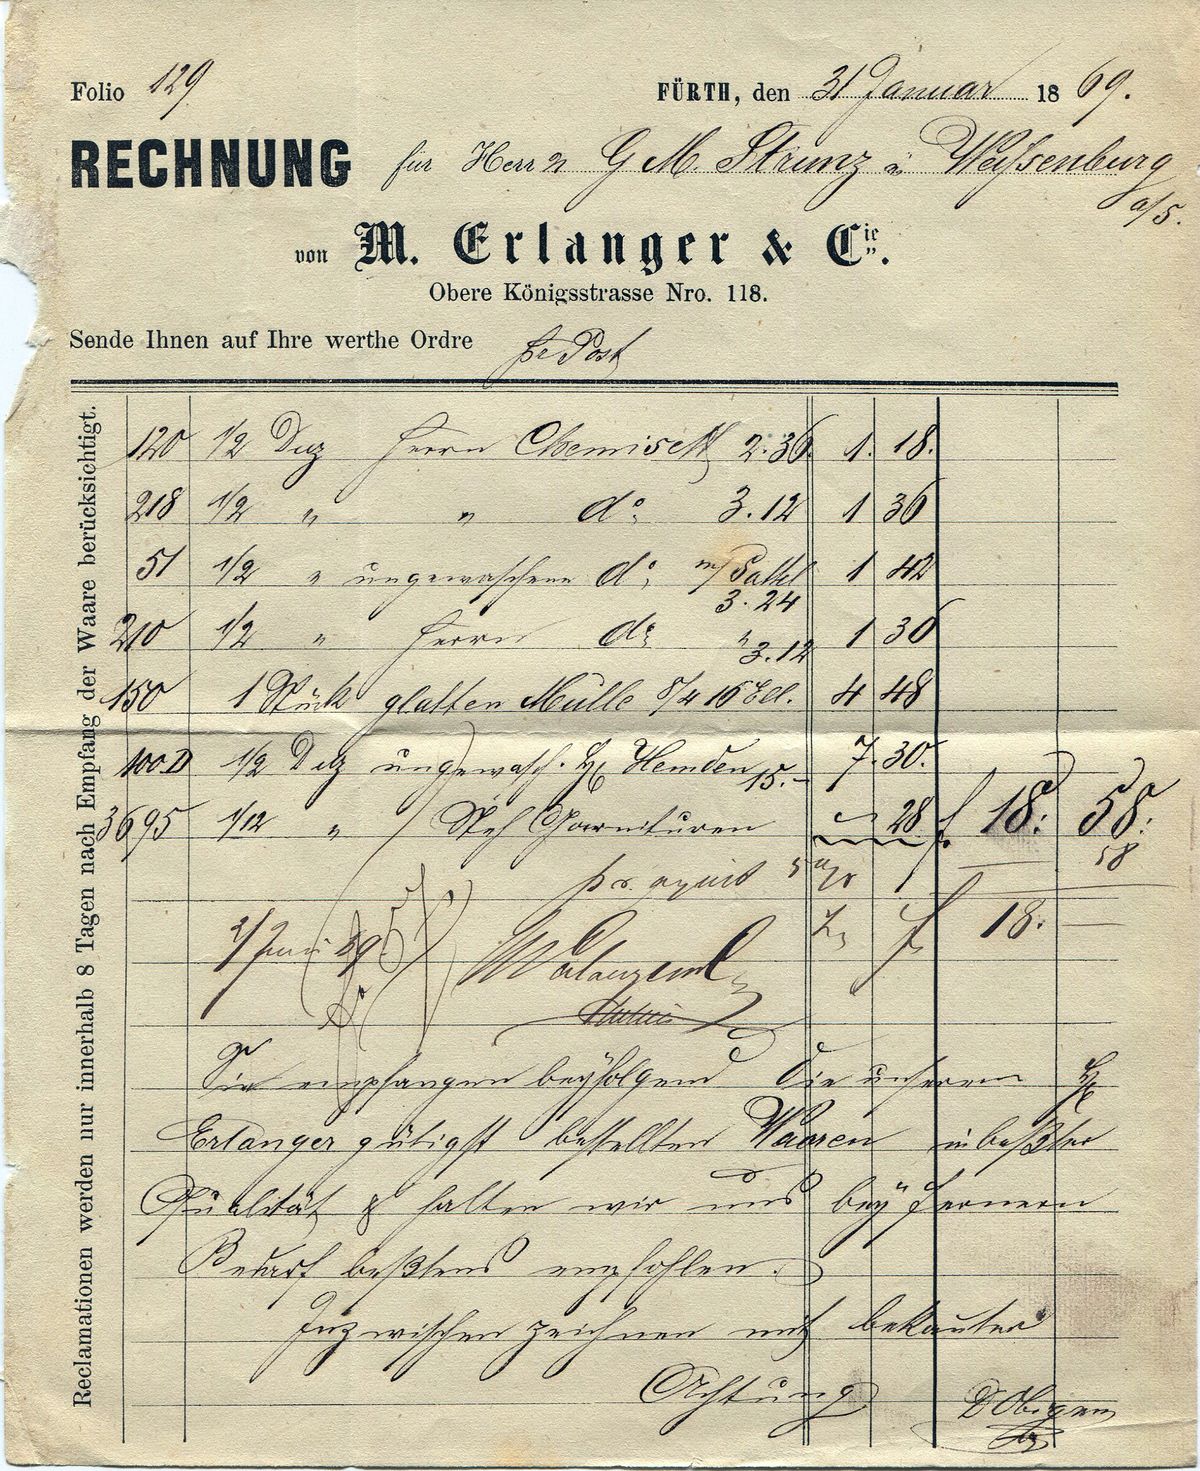 Folio 129
FÜRTH, den 31 Januar 1869.
RECHNUNG für Herrn G M. Strunz in Weißenburg
a/S.
von M. Erlanger & Cie.
Obere Königsstrasse Nro. 118.
Sende Ihnen auf Ihre werthe Ordre pr Post
Reclamationen werden nur innerhalb 8 Tagen nach Empfang der Waare berücksichtigt.
120 1/2 Duz Herrn Chemisett 2.36. 1. 18.
218 1/2 " " do 3.12 1 36
51 1/2 " ungewaschene do m/ Sattel 1 42
3.24
210 1/2 " Herrn do " 3.12 1 36
150 1 Stück glatten Mülle 8/4 16 Ell. 4 48
100.D 1/2 Dutz ungewasch. Hemden 15.- 7.30.
3695 1/12 " Garnituren 28 f 18: 58:
58
f 18. —
2/ Juni 69
Sie empfangen beyfolgend die unserem
Erlanger gütigst bestellten Waaren in beßter
Qualität & halten wir uns bey fernern
Bedarf beßtens empfohlen.
Inzwischen zeichnen mit bekannter
Achtung
D Obigen